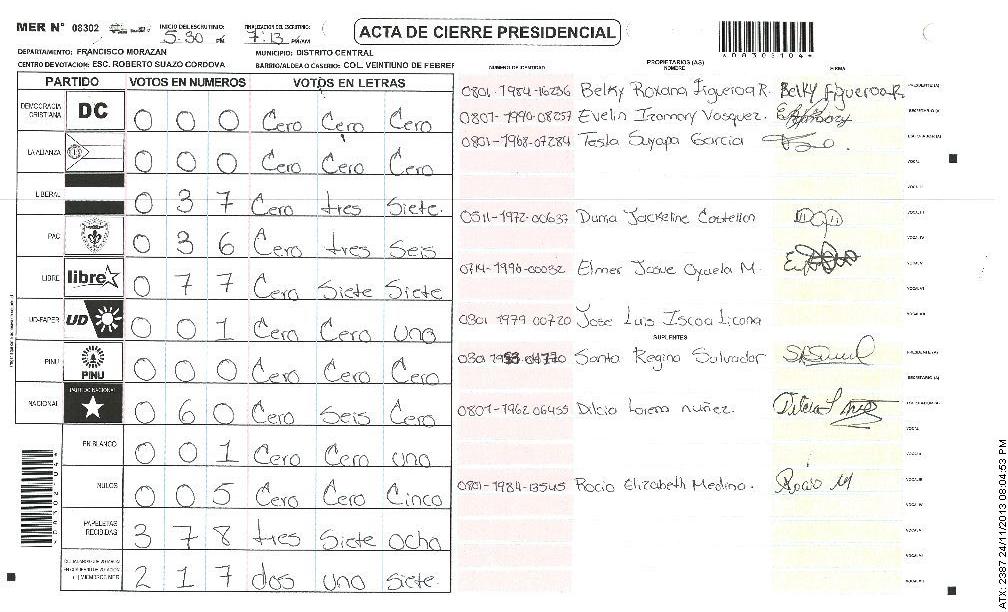 MER N° 08302
INICIO DEL ESCRUTINIO: 5:30 PM
FINALIZACION DEL ESCRUTINIO: 7:13 PM/AM
ACTA DE CIERRE PRESIDENCIAL
DEPARTAMENTO: FRANCISCO MORAZAN
MUNICIPIO: DISTRITO CENTRAL
CENTRO DE VOTACION: ESC. ROBERTO SUAZO CORDOVA
BARRIO/ALDEA O CASERIO: COL. VEINTIUNO DE FEBRER
PARTIDO VOTOS EN NUMEROS VOTOS EN LETRAS
DEMOCRACIA CRISTIANA DC 0 0 0 Cero Cero Cero
LA ALIANZA 0 0 0 Cero Cero Cero
LIBERAL 0 3 7 Cero tres Siete.
PAC 0 3 6 Cero tres Seis
LIBRE libre 0 7 7 Cero Siete Siete
UD-FAPER UD 0 0 1 Cero Cero uno
PINU PINU 0 0 0 Cero Cero Cero
NACIONAL PARTIDO NACIONAL 0 6 0 Cero Seis Cero
EN BLANCO 0 0 1 Cero Cero uno
NULOS 0 0 5 Cero Cero Cinco
PAPELETAS RECIBIDAS 3 7 8 tres Siete ocho
2 1 7 dos uno Siete.
NUMERO DE IDENTIDAD
PROPIETARIOS (AS)
NOMBRE
FIRMA
0801-1984-16256 Belky Roxana Figueroa R. Belky Figueroa R
0801-1990-08257 Evelin Izamary Vasquez.
0801-1968-07284 Tesla Suyapa Garcia
0511-1972-00637 Dunia Jackeline Castellon
0714-1990-00032 Elmer Josue Oyuela M.
0801 1979 00720 Jose Luis Iscoa Licona
SUPLENTES
Santa Regina Salvador
0801-1962 06455 Dilcia Lorena nuñez.
0801-1984-13545 Rocio Elizabeth Medina. Rocio M
PRESIDENTE (A)
SECRETARIO (A)
ESCRUTADOR (A)
VOCAL
*00303104*
ATX: 2387 24/11/2013 08:04:53 PM